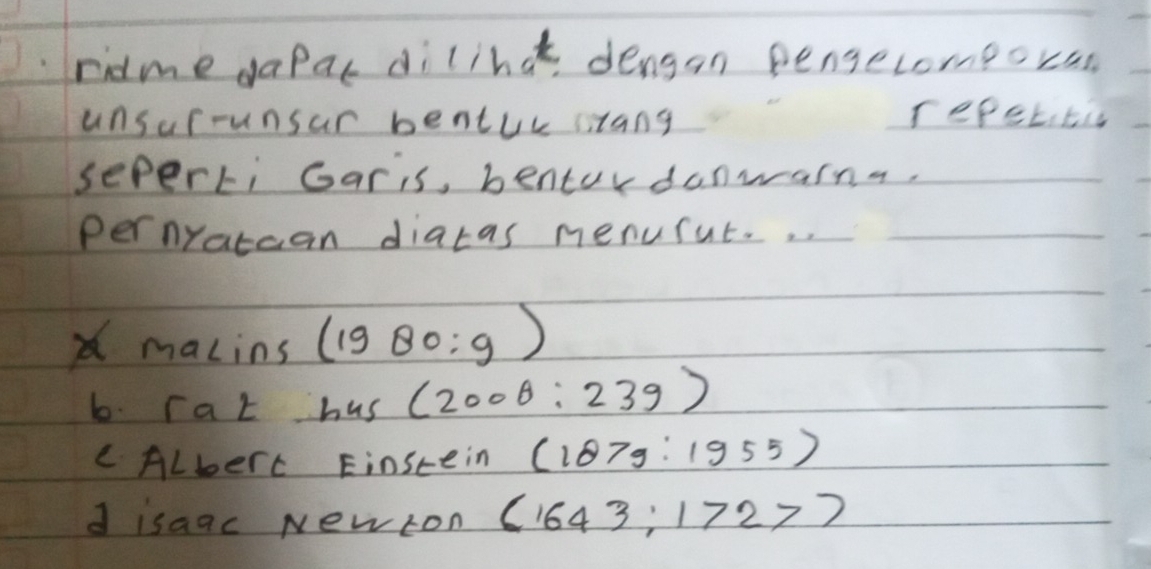 ridme dapat dilihat dengan pengelompokan
unsur-unsur bentuk yang repetitis
seperti Garis, bentuk dan warna.
Pernyataan diatas menurut...
a malins (1980:9)
b. rat hus (2008:239)
c Albert Einstein (1879:1955)
d isaac Newton (1643;1727)